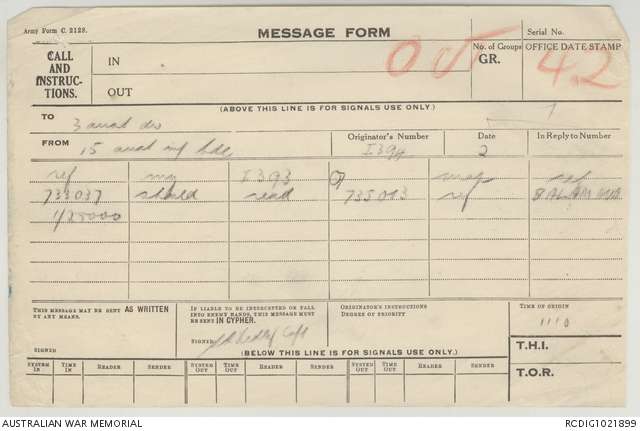 Army Form C. 2128.
MESSAGE FORM
Serial No.
CALL AND INSTRUC-TIONS.
IN
OUT
No. of Groups GR.
OFFICE DATE STAMP
42
(ABOVE THIS LINE IS FOR SIGNALS USE ONLY.)
TO 3 aust div
FROM 15 aust inf bde
Originator's Number I394
Date 2
In Reply to Number
ref my I393 map ref
733037 should read 735043 ref
1/25000
THIS MESSAGE MAY BE SENT AS WRITTEN BY ANY MEANS.
SIGNED
IF LIABLE TO BE INTERCEPTED OR FALL INTO ENEMY HANDS, THIS MESSAGE MUST BE SENT IN CYPHER.
SIGNED Capt
ORIGINATOR'S INSTRUCTIONS DEGREE OF PRIORITY
TIME OF ORIGIN
1110
(BELOW THIS LINE IS FOR SIGNALS USE ONLY.)
T.H.I.
T.O.R.
SYSTEM IN TIME IN READER SENDER SYSTEM OUT TIME OUT READER SENDER SYSTEM OUT TIME OUT READER SENDER
AUSTRALIAN WAR MEMORIAL
RCDIG1021899